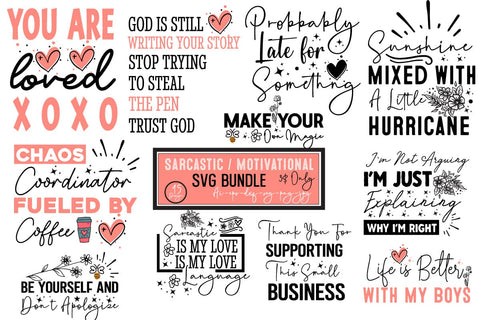 YOU ARE
loved
XOXO
GOD IS STILL
WRITING YOUR STORY
STOP TRYING
TO STEAL
THE PEN
TRUST GOD
Probbably
Late for
Something
MAKE YOUR
Own Magic
Sunshine
MIXED WITH
A Little
HURRICANE
CHAOS
Coordinator
FUELED BY
Coffee
SARCASTIC / MOTIVATIONAL
SVG BUNDLE
$1 Only
15
I'm Not Arguing
I'M JUST
Explaining
WHY I'M RIGHT
BE YOURSELF AND
Don't Apologize
Sarcastic
IS MY LOVE
IS MY LOVE
Language
Thank You For
SUPPORTING
This Small
BUSINESS
Life is Better
WITH MY BOYS